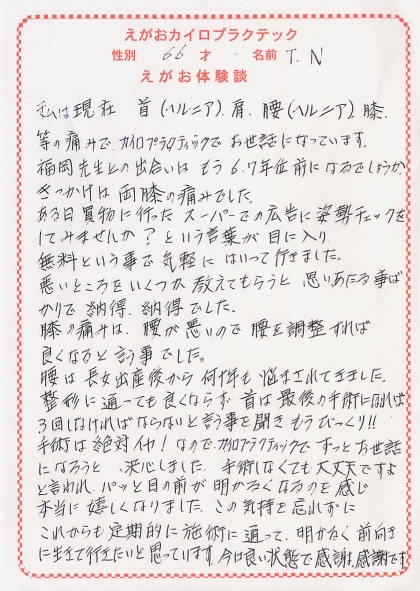 えがおカイロプラクテック
性別 66 才 名前 T. N
えがお体験談
私は現在 首(ヘルニア).肩.腰(ヘルニア).膝.
等の痛みで、カイロプラクティックでお世話になっています。
福岡先生との出合いは もう6.7年位前になるでしょうか
きっかけは両膝の痛みでした。
ある日買物に行ったスーパーでの広告に姿勢チェックを
してみませんか?という言葉が目に入り
無料という事で気軽に はいって行きました。
悪いところをいくつか教えてもらうと 思いあたる事ば
かりで納得.納得でした。
膝の痛みは、腰が悪いので腰を調整すれば
良くなると言う事でした。
腰は長女出産後から何十年も悩まされてきました。
整形に通っても良くならず 首は最後の手術になれば
3回しなければならないと言う事を聞き もうびっくり!!
手術は絶対イヤ!なのでカイロプラクティックでずっとお世話
になろうと 決心しました 手術しなくても大丈夫ですよ
と言われ パッと目の前が明かるくなるのを感じ
本当に嬉しくなりました この気持を忘れずに
これからも定期的に施術に通って、明かるく前向き
に生きて行きたいと思っています。今は良い状態で感謝、感謝です